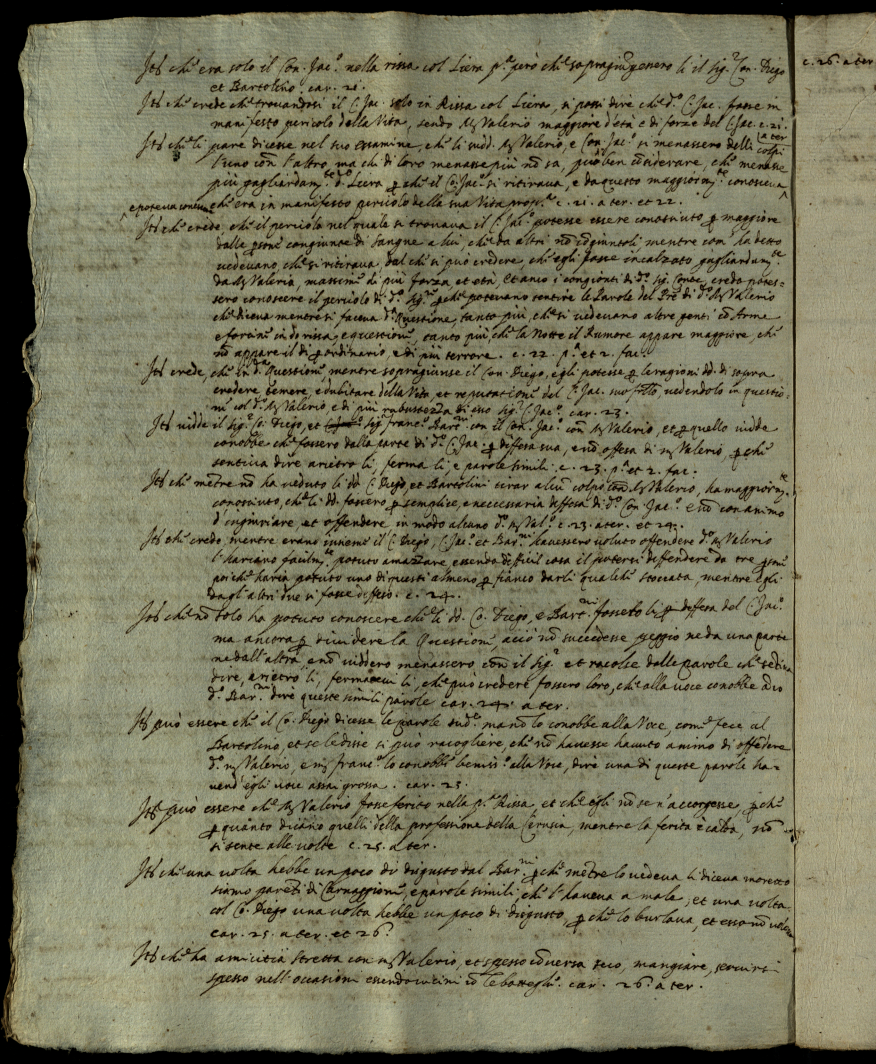 Itē che era solo il Con. Jac.º nella rissa col Liera p.ª però che sopragiungessero li il Sig.r Con. Diego
et Bartolino, car. 21.
Itē che crede che trovandosi il C. Jac. solo in Rissa col Liera, si possi dire che d.º C. Jac. fosse in
manifesto pericolo della Vita, sendo M. Valerio maggiore d'età e di forze del C. Jac. c. 21.
a ter
Itē che li pare dicesse nel suo essamine, che li sudd. M. Valerio, e Con. Jac.º si menassero delli colpi
l'uno con l'altro, ma chi di loro menasse più nō sa, può ben considerare, che menasse
più gagliardam.te d.º Liera p che il Co. Jac.º si ritirava, e da questo maggiorm.te conosceva
e poteva conoscere che era in manifesto pericolo della sua Vita prop.ª c. 21. a ter. et 22.
Itē che crede, che il pericolo nel quale si trovava il C. Jac.º potesse essere conosciuto p maggiore
dalle psone congiunte di sangue a lui, che da altri nō cōgiuntoli, mentre com' ha detto
vedevano, che si ritirava, dal che si può credere, che egli fosse incalzato gagliardam.te
da M. Valerio, massime di più forza, et età, et anco i congionti di d.º Sig. Conte, credo potes=
sero conoscere il pericolo di d.º Sig.r p che potevano sentire le Parole del d.º M. Valerio
che diceva mentre si faceva d.ª Questione, tanto più, che si vedevano altre genti cō Arme
e forcini in d.ª rissa, e questione, tanto più che la Notte il Rumore appare maggiore, che
nō appare il dì p ordinario, e di più terrore. c. 22. p.ª et 2. fac.
Itē crede, che in d.ª Questione, mentre sopragiunse il Con. Diego, egli potesse p le ragioni dd. di sopra
credere, temere, e dubitare della Vita, et reputatione del C. Jac. suo fratello, vedendolo in questio=
ne col d.º M. Valerio, e di più robustezza di esso Sig. C. Jac.º car. 23.
Itē vidde il Sig.r Co. Diego, et Sig. Franc.º Bar.ni con il Con. Jac.º con M. Valerio, et p quello vidde
conobbe che fossero dalla parte di d.º C. Jac. p diffesa sua, e nō offesa di M. Valerio, p che
sentiva dire arietro li, ferma li, e parole simili. c. 23. p.ª et 2. fac.
Itē che mētre nō ha veduto li dd. C. Diego, et Bartolini tirar alcun colpo con M. Valerio, ha maggiorm.te
conosciuto, che li dd. fossero p semplice, e necessaria diffesa di d.º Con. Jac.º e nō con animo
d'ingiuriare, et offendere in modo alcuno d.º M. Val.º c. 23. a ter. et 24.
Itē che crede, mentre erano insieme il C. Diego, C. Jac.º et Bar.ni havessero voluto offendere d.º M. Valerio
l'hariano facilm.te potuto amazzare, essendo difficil cosa il potersi diffendere da tre psone
poiche haria potuto uno di questi almeno p fianco darli qualche stoccata, mentre egli
dagl'altri due si fosse diffeso. c. 24.
Itē che nō solo ha potuto conoscere che li dd. Co. Diego, e Bart.ni fossero li p diffesa del C. Jac.º
ma ancora p dividere la Questione, acciò nō succedesse peggio ne da una parte
ne dall'altra, e nō viddero menassero con il Sig.r et racolse dalle parole che sentiva
dire, arietro li, fermatevi li, che può credere fossero loro, che alla voce conobbe a d.º
d.º Bar.ni dire queste simili parole car. 24. a ter.
Itē può essere che il Co. Diego dicesse le parole sud.e ma nō lo conobbe alla Voce, come fece al
Bartolino, et se le disse si può racogliere, che nō havesse havuto animo di offēdere
d.º M. Valerio, e M. Franc.º lo conobbe beniss.º alla Voce, dire una di queste parole ha=
vend' egli voce assai grossa. car. 25.
Itē può essere che M. Valerio fosse ferito nella p.ª Rissa, et che egli nō se n'accorgesse, p che
p quanto dicano quelli della professione della Cirusia, mentre la ferita è calda, nō
si sente alle volte c. 25. a ter.
Itē che una volta hebbe un poco di disgusto dal Bar.ni p che mētre lo vedeva li diceva moretto
siamo parēti di Carnaggione, e parole simili, che l'haveva a male, et una volta
col Co. Diego una volta hebbe un poco di disgusto, p che lo burlava, et esso nō voleva
car. 25. a ter. et 26.
Itē che ha amicitia stretta con M. Valerio, et spesso cōversa seco, mangiare, servirsi
spesso nell'occasioni essendo vicini cō le botteghe. car. 26. a ter.
c. 26. a ter